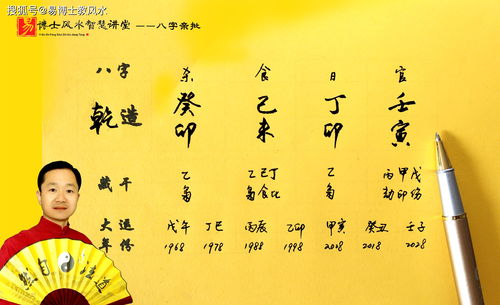 搜狐号@易博士教风水
易 博士风水智慧讲堂 ——八字亲批
Yi Bo Shi Feng Shui Zhi Hui Jiang Tang
八字 杀 食 日 官
乾造 癸 己 丁 壬
卯 未 卯 寅
藏干 乙 乙己丁 乙 丙甲戊
枭 枭食比 枭 劫印伤
大运 戊午 丁巳 丙辰 乙卯 甲寅 癸丑 壬子
年份 1968 1978 1988 1998 2018 2018 2028
道法自然